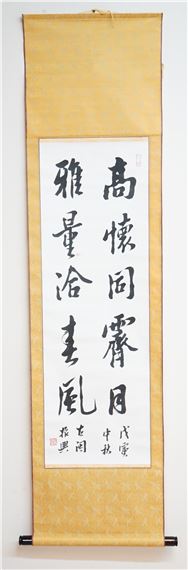 高懷同霽月
戊寅
中秋
雅量洽春風
振興